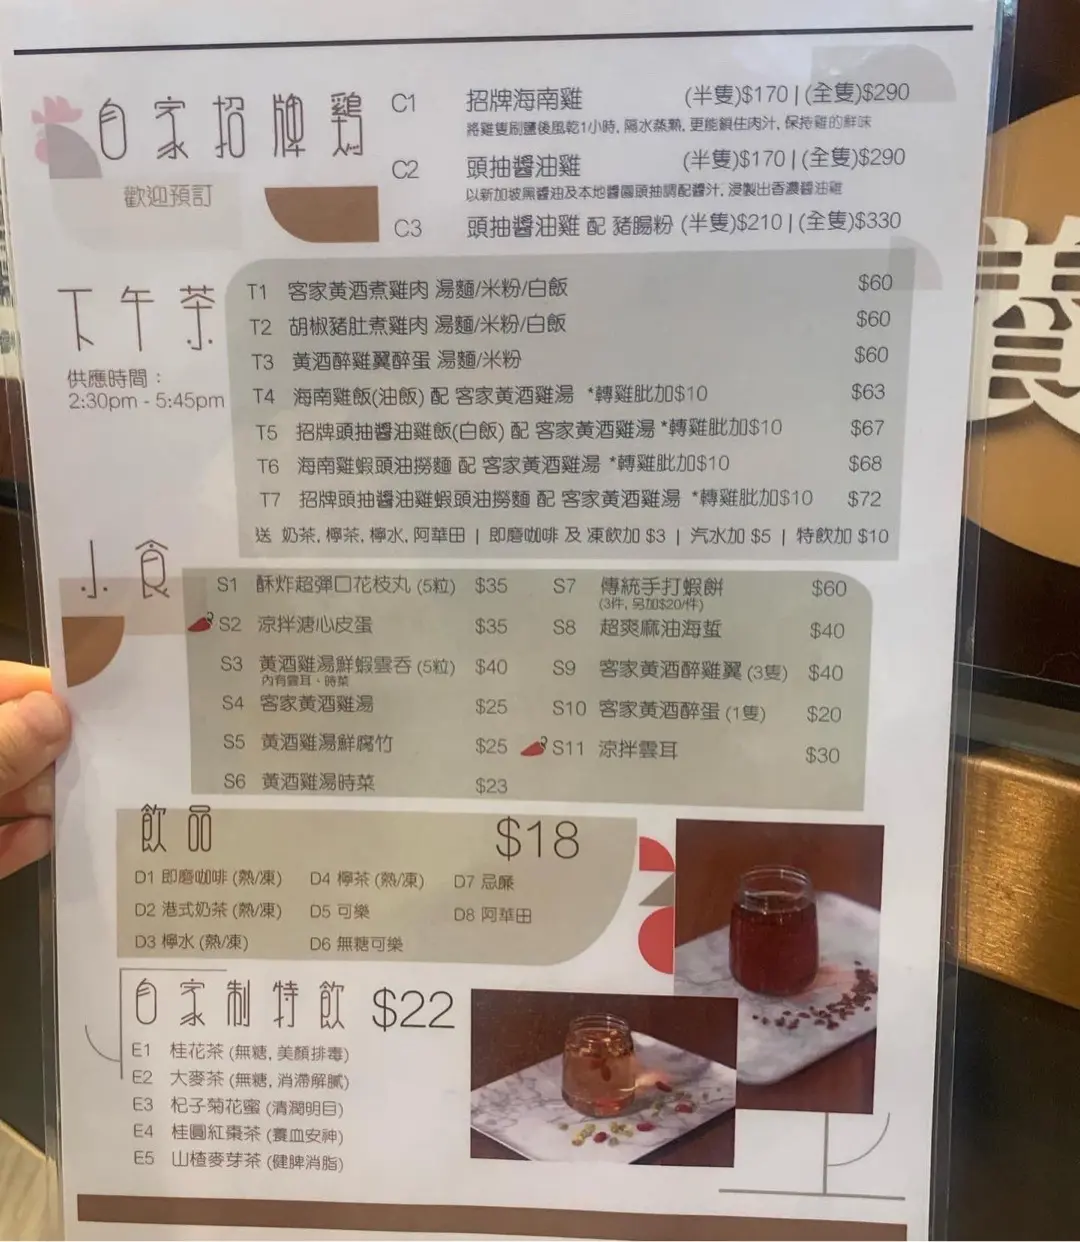 自家招牌鷄
歡迎預訂
C1 招牌海南雞 (半隻)$170 | (全隻)$290
將雞隻刷鹽後風乾1小時, 隔水蒸熟, 更能鎖住肉汁, 保持雞的鮮味
C2 頭抽醬油雞 (半隻)$170 | (全隻)$290
以新加坡黑醬油及本地醬園頭抽調配醬汁, 浸製出香濃醬油雞
C3 頭抽醬油雞 配 豬腸粉 (半隻)$210 | (全隻)$330
下午茶
供應時間：
2:30pm - 5:45pm
T1 客家黃酒煮雞肉 湯麵/米粉/白飯 $60
T2 胡椒豬肚煮雞肉 湯麵/米粉/白飯 $60
T3 黃酒醉雞翼醉蛋 湯麵/米粉 $60
T4 海南雞飯(油飯) 配 客家黃酒雞湯 *轉雞肶加$10 $63
T5 招牌頭抽醬油雞飯(白飯) 配 客家黃酒雞湯 *轉雞肶加$10 $67
T6 海南雞蝦頭油撈麵 配 客家黃酒雞湯 *轉雞肶加$10 $68
T7 招牌頭抽醬油雞蝦頭油撈麵 配 客家黃酒雞湯 *轉雞肶加$10 $72
送 奶茶, 檸茶, 檸水, 阿華田 | 即磨咖啡 及 凍飲加 $3 | 汽水加 $5 | 特飲加 $10
小食
S1 酥炸超彈口花枝丸 (5粒) $35
S2 涼拌溏心皮蛋 $35
S3 黃酒雞湯鮮蝦雲吞 (5粒) $40
內有雲耳、時菜
S4 客家黃酒雞湯 $25
S5 黃酒雞湯鮮腐竹 $25
S6 黃酒雞湯時菜 $23
S7 傳統手打蝦餅 $60
(3件, 另加$20/件)
S8 超爽麻油海蜇 $40
S9 客家黃酒醉雞翼 (3隻) $40
S10 客家黃酒醉蛋 (1隻) $20
S11 涼拌雲耳 $30
飲品 $18
D1 即磨咖啡 (熱/凍)
D2 港式奶茶 (熱/凍)
D3 檸水 (熱/凍)
D4 檸茶 (熱/凍)
D5 可樂
D6 無糖可樂
D7 忌廉
D8 阿華田
自家制特飲 $22
E1 桂花茶 (無糖, 美顏排毒)
E2 大麥茶 (無糖, 消滯解膩)
E3 杞子菊花蜜 (清潤明目)
E4 桂圓紅棗茶 (養血安神)
E5 山楂麥芽茶 (健脾消脂)
養